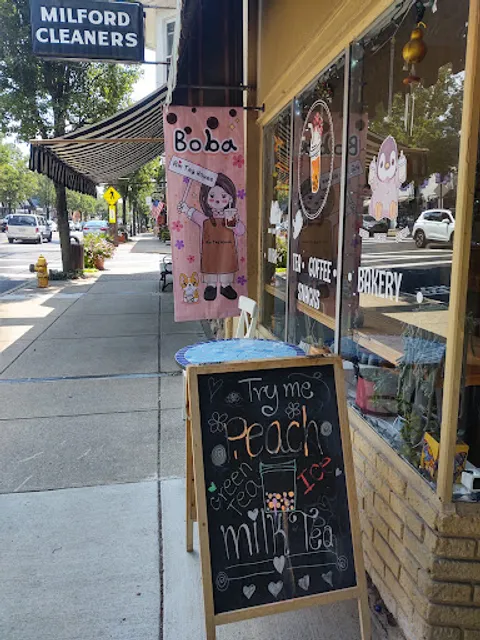 MILFORD
CLEANERS
Boba
TEA · COFFEE ·
SNACKS
· BAKERY ·
Try me
Peach
green
Tea
Ice
milk Tea